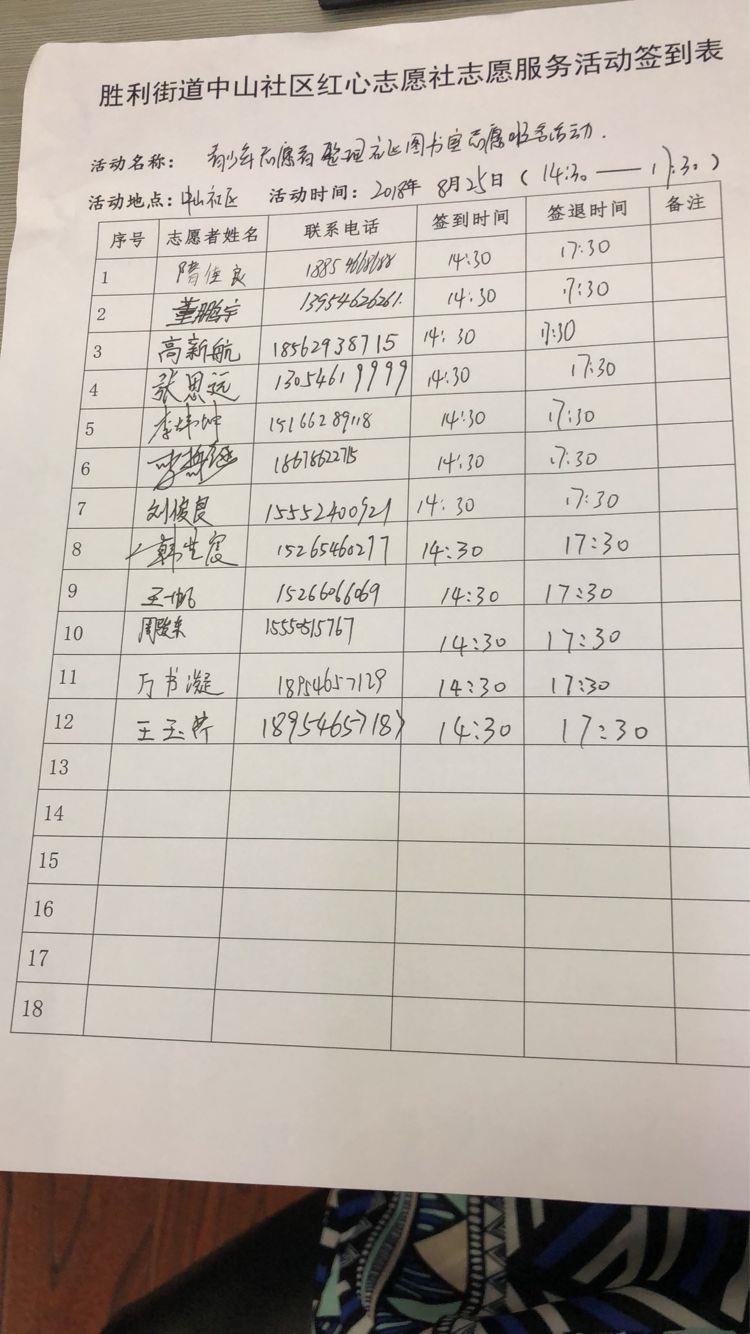 胜利街道中山社区红心志愿社志愿服务活动签到表
活动名称： 青少年志愿者整理社区图书室志愿服务活动.
活动地点：中山社区 活动时间：2018年 8月25日（14:30——17:30）
序号 志愿者姓名 联系电话 签到时间 签退时间 备注
1 隋佳良 14:30 17:30
2 董鹏宇 13954626261. 14:30 17:30
3 高新航 18562938715 14:30 17:30
4 张思远 13054619999 14:30 17:30
5 15166289118 14:30 17:30
6 18678622715 14:30 17:30
7 刘俊良 15552400921 14:30 17:30
8 15265460277 14:30 17:30
9 王一帆 15266066069 14:30 17:30
10 15550515767 14:30 17:30
11 万书凝 18954657129 14:30 17:30
12 18954657187 14:30 17:30
13
14
15
16
17
18